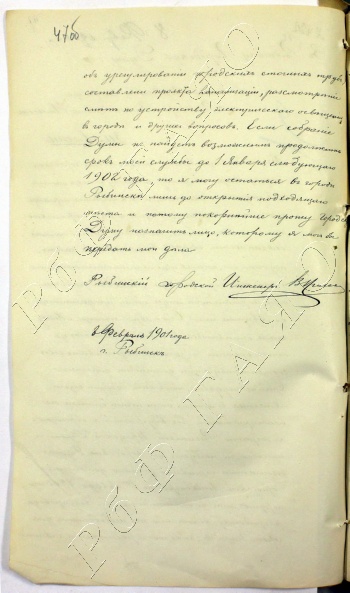 47об
объ урегулированiи городскихъ сточныхъ трубъ,
составленiи проекта канализацiи, разсмотренiи
сметъ по устройству электрическаго освещенiя
въ городе и другихъ вопросовъ. Если собранiе
Думы не найдетъ возможнымъ продолжить
срокъ моей службы до 1 января следующаго
1902 года, то я могу остаться въ городе
Рыбинске лишь до открытiя подходящаго
места и потому покорнейше прошу Городскую
Думу назначить лицо, которому я могъ бы
передать мои дела
Рыбинскiй городской Инженеръ
Февраль 1901 года
г. Рыбинскъ
РбФ ГАЯО